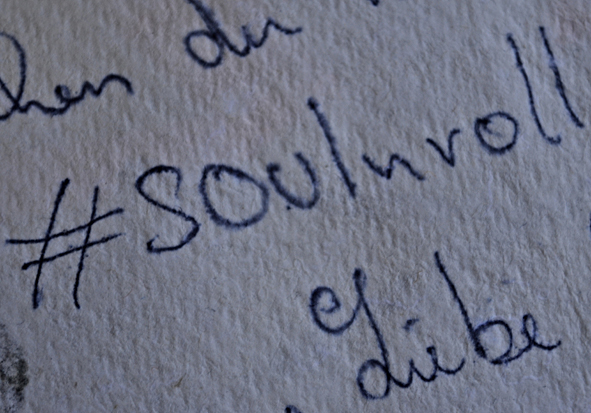 hen du
#SOulnroll
Liebe